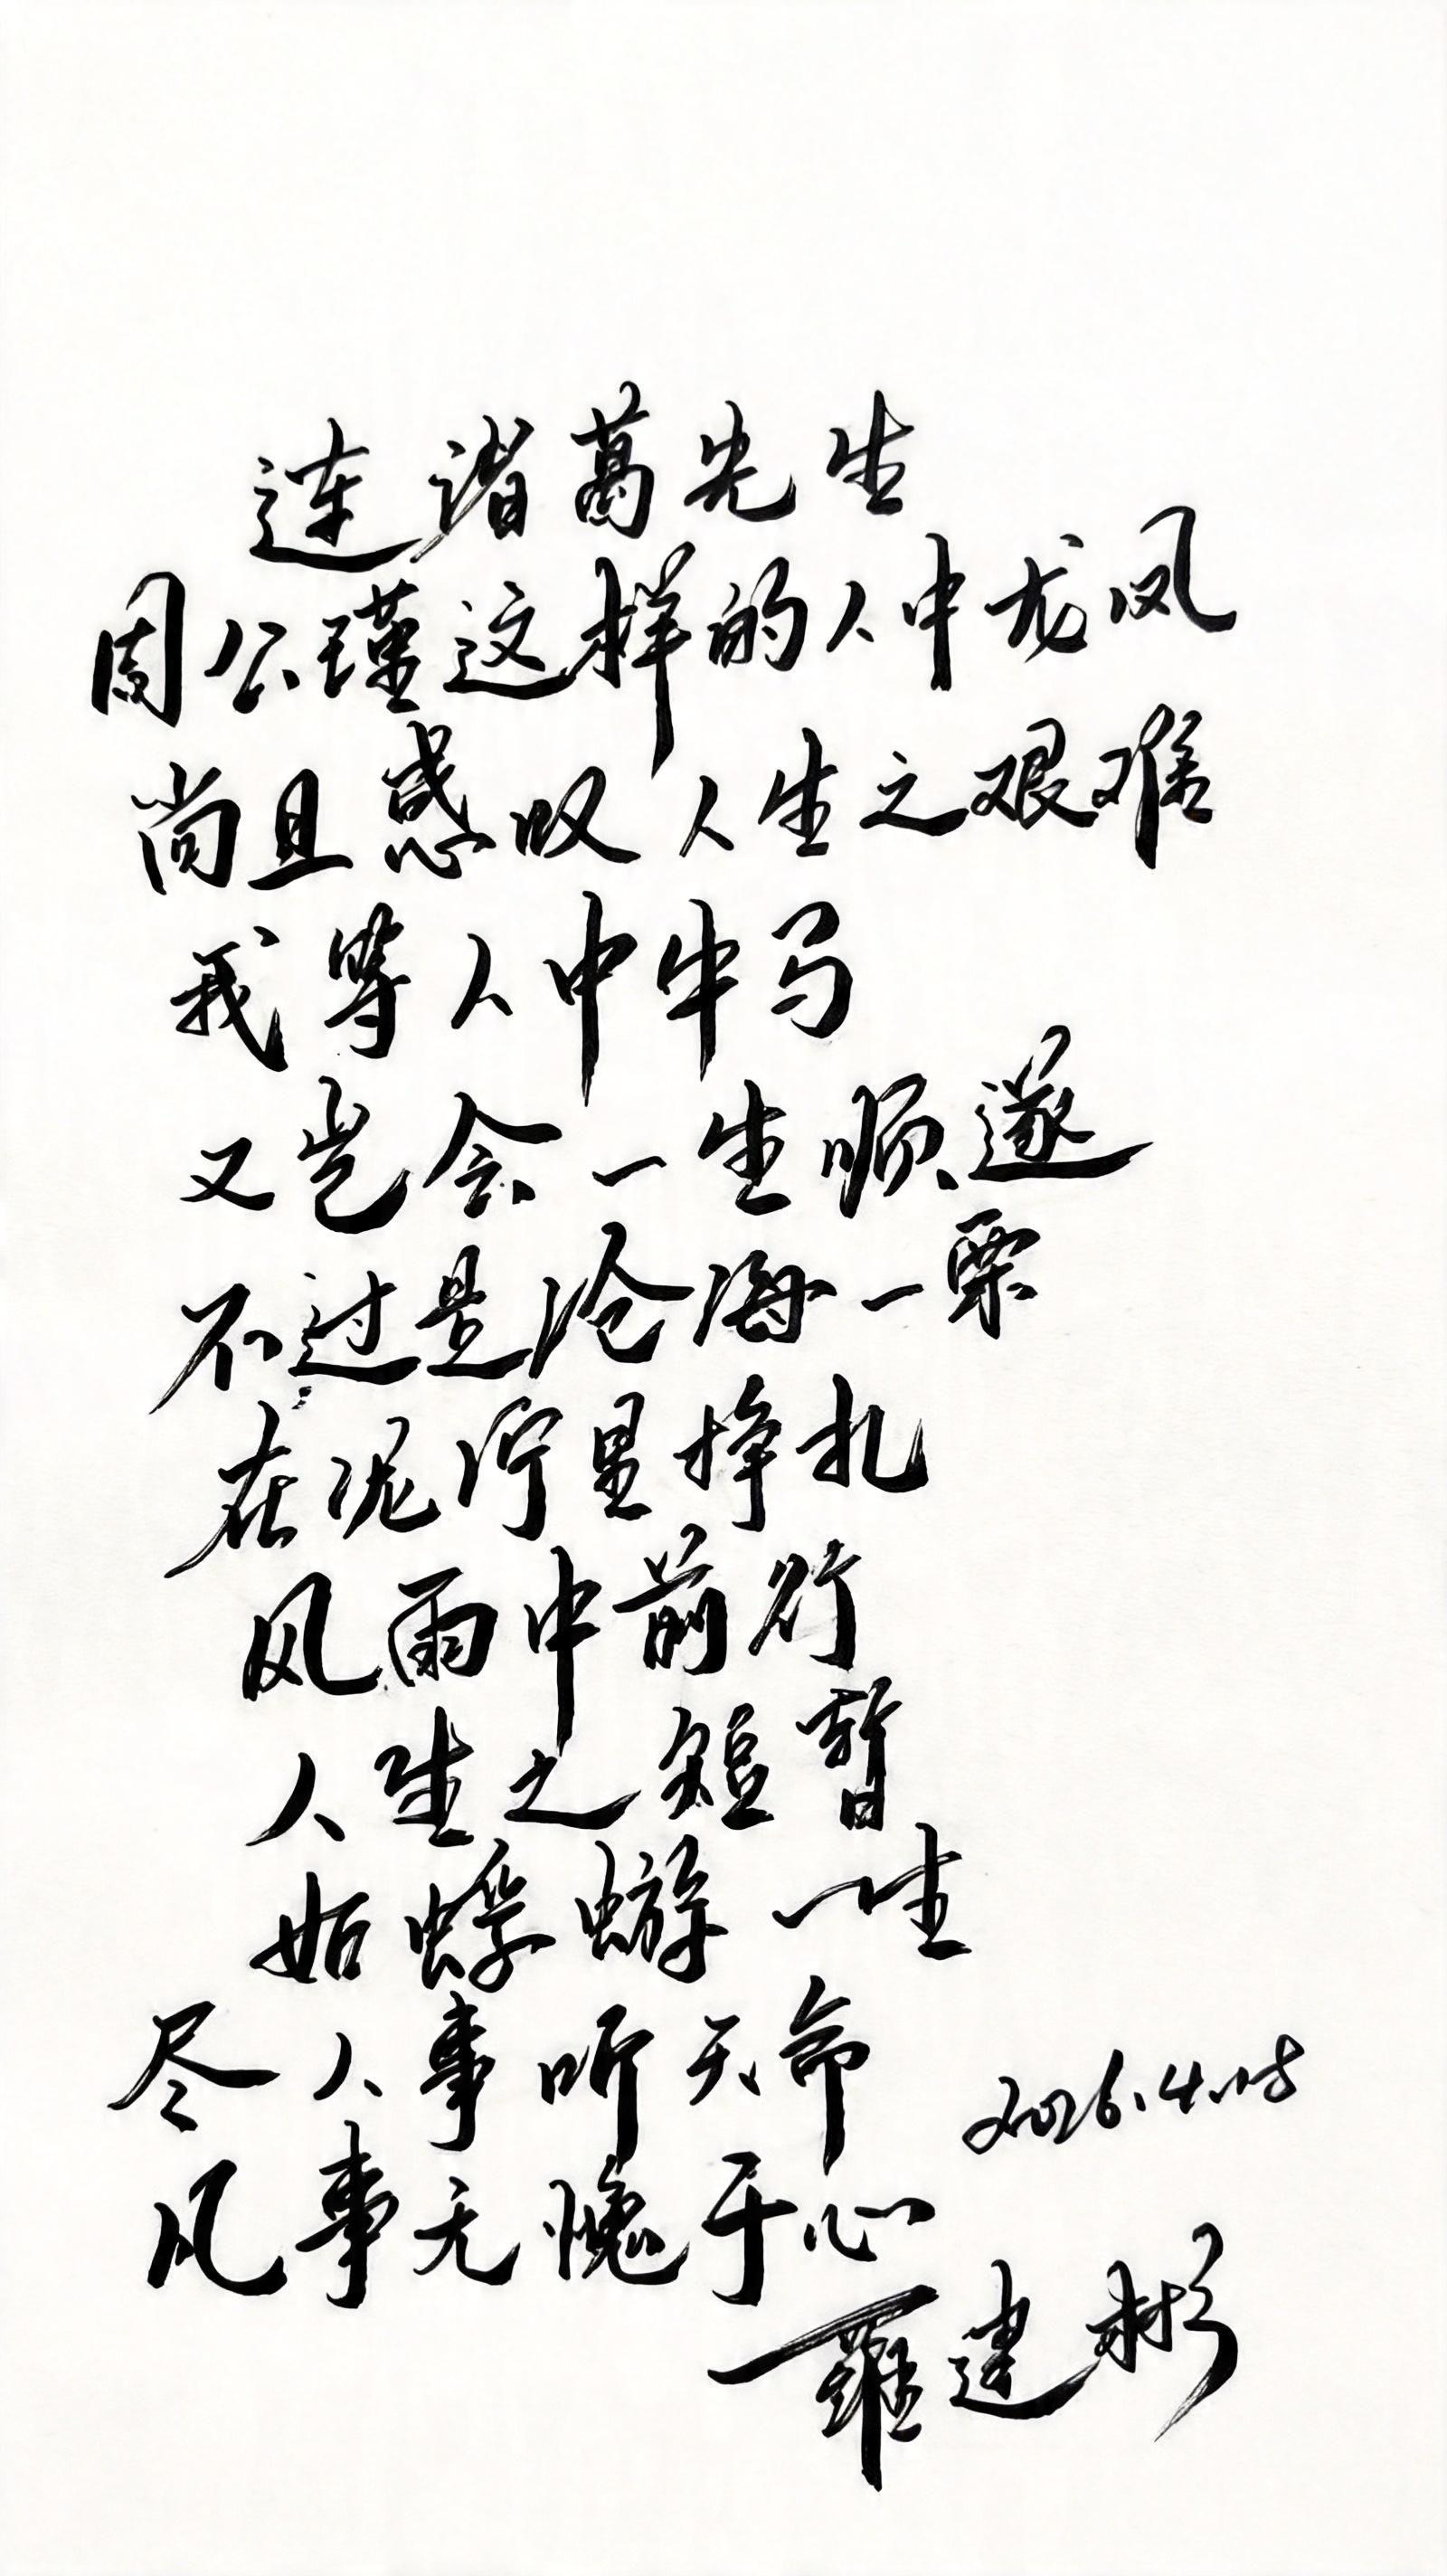 连诸葛先生
周公瑾这样的人中龙凤
尚且感叹人生之艰难
我等人中牛马
又岂会一生顺遂
不过是沧海一栗
在泥泞里挣扎
风雨中前行
人生之短暂
如蜉蝣一生
尽人事听天命
2026.4.18
凡事无愧于心
羅建彬